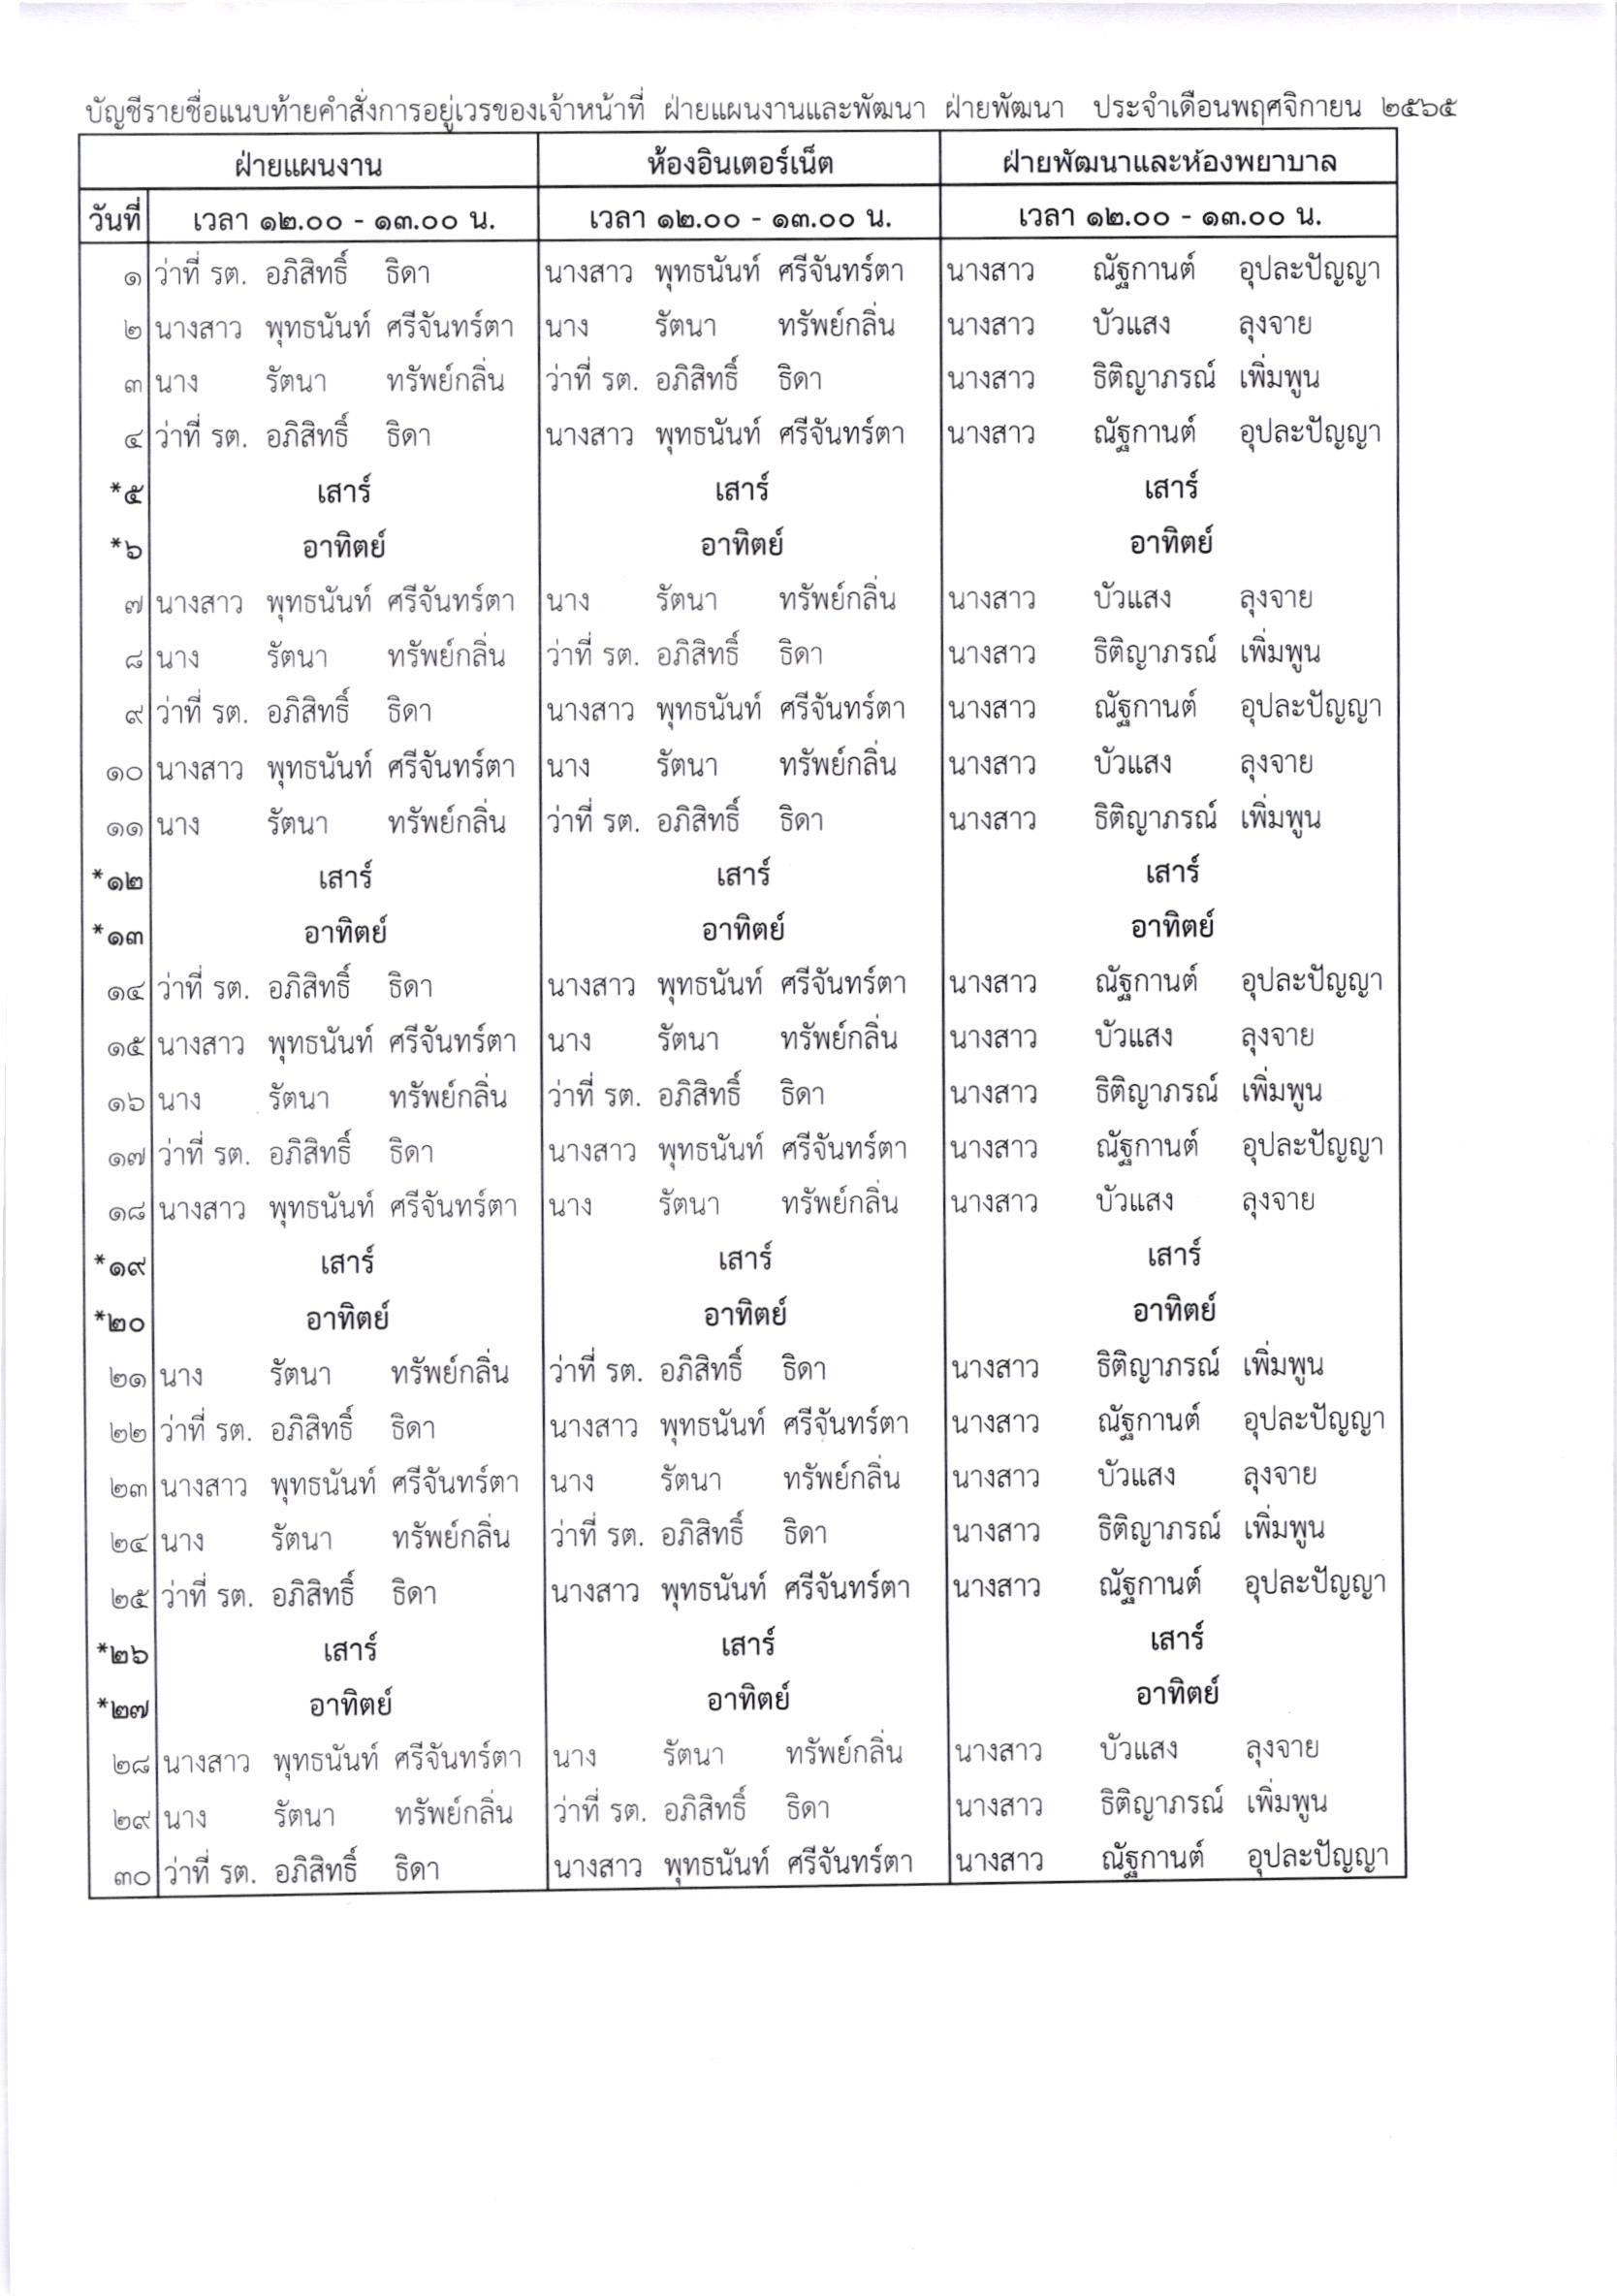 บัญชีรายชื่อแนบท้ายคำสั่งการอยู่เวรของเจ้าหน้าที่ ฝ่ายแผนงานและพัฒนา ฝ่ายพัฒนา ประจำเดือนพฤศจิกายน ๒๕๖๕
ฝ่ายแผนงาน ห้องอินเตอร์เน็ต ฝ่ายพัฒนาและห้องพยาบาล
วันที่ เวลา ๑๒.๐๐ - ๑๓.๐๐ น. เวลา ๑๒.๐๐ - ๑๓.๐๐ น. เวลา ๑๒.๐๐ - ๑๓.๐๐ น.
๑ ว่าที่ รต. อภิสิทธิ์ ธิดา นางสาว พุทธนันท์ ศรีจันทร์ตา นางสาว ณัฐกานต์ อุปละปัญญา
๒ นางสาว พุทธนันท์ ศรีจันทร์ตา นาง รัตนา ทรัพย์กลิ่น นางสาว บัวแสง ลุงจาย
๓ นาง รัตนา ทรัพย์กลิ่น ว่าที่ รต. อภิสิทธิ์ ธิดา นางสาว ธิติญาภรณ์ เพิ่มพูน
๔ ว่าที่ รต. อภิสิทธิ์ ธิดา นางสาว พุทธนันท์ ศรีจันทร์ตา นางสาว ณัฐกานต์ อุปละปัญญา
*๕ เสาร์ เสาร์ เสาร์
*๖ อาทิตย์ อาทิตย์ อาทิตย์
๗ นางสาว พุทธนันท์ ศรีจันทร์ตา นาง รัตนา ทรัพย์กลิ่น นางสาว บัวแสง ลุงจาย
๘ นาง รัตนา ทรัพย์กลิ่น ว่าที่ รต. อภิสิทธิ์ ธิดา นางสาว ธิติญาภรณ์ เพิ่มพูน
๙ ว่าที่ รต. อภิสิทธิ์ ธิดา นางสาว พุทธนันท์ ศรีจันทร์ตา นางสาว ณัฐกานต์ อุปละปัญญา
๑๐ นางสาว พุทธนันท์ ศรีจันทร์ตา นาง รัตนา ทรัพย์กลิ่น นางสาว บัวแสง ลุงจาย
๑๑ นาง รัตนา ทรัพย์กลิ่น ว่าที่ รต. อภิสิทธิ์ ธิดา นางสาว ธิติญาภรณ์ เพิ่มพูน
*๑๒ เสาร์ เสาร์ เสาร์
*๑๓ อาทิตย์ อาทิตย์ อาทิตย์
๑๔ ว่าที่ รต. อภิสิทธิ์ ธิดา นางสาว พุทธนันท์ ศรีจันทร์ตา นางสาว ณัฐกานต์ อุปละปัญญา
๑๕ นางสาว พุทธนันท์ ศรีจันทร์ตา นาง รัตนา ทรัพย์กลิ่น นางสาว บัวแสง ลุงจาย
๑๖ นาง รัตนา ทรัพย์กลิ่น ว่าที่ รต. อภิสิทธิ์ ธิดา นางสาว ธิติญาภรณ์ เพิ่มพูน
๑๗ ว่าที่ รต. อภิสิทธิ์ ธิดา นางสาว พุทธนันท์ ศรีจันทร์ตา นางสาว ณัฐกานต์ อุปละปัญญา
๑๘ นางสาว พุทธนันท์ ศรีจันทร์ตา นาง รัตนา ทรัพย์กลิ่น นางสาว บัวแสง ลุงจาย
*๑๙ เสาร์ เสาร์ เสาร์
*๒๐ อาทิตย์ อาทิตย์ อาทิตย์
๒๑ นาง รัตนา ทรัพย์กลิ่น ว่าที่ รต. อภิสิทธิ์ ธิดา นางสาว ธิติญาภรณ์ เพิ่มพูน
๒๒ ว่าที่ รต. อภิสิทธิ์ ธิดา นางสาว พุทธนันท์ ศรีจันทร์ตา นางสาว ณัฐกานต์ อุปละปัญญา
๒๓ นางสาว พุทธนันท์ ศรีจันทร์ตา นาง รัตนา ทรัพย์กลิ่น นางสาว บัวแสง ลุงจาย
๒๔ นาง รัตนา ทรัพย์กลิ่น ว่าที่ รต. อภิสิทธิ์ ธิดา นางสาว ธิติญาภรณ์ เพิ่มพูน
๒๕ ว่าที่ รต. อภิสิทธิ์ ธิดา นางสาว พุทธนันท์ ศรีจันทร์ตา นางสาว ณัฐกานต์ อุปละปัญญา
*๒๖ เสาร์ เสาร์ เสาร์
*๒๗ อาทิตย์ อาทิตย์ อาทิตย์
๒๘ นางสาว พุทธนันท์ ศรีจันทร์ตา นาง รัตนา ทรัพย์กลิ่น นางสาว บัวแสง ลุงจาย
๒๙ นาง รัตนา ทรัพย์กลิ่น ว่าที่ รต. อภิสิทธิ์ ธิดา นางสาว ธิติญาภรณ์ เพิ่มพูน
๓๐ ว่าที่ รต. อภิสิทธิ์ ธิดา นางสาว พุทธนันท์ ศรีจันทร์ตา นางสาว ณัฐกานต์ อุปละปัญญา